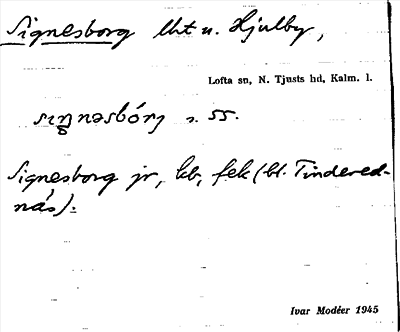 Signesborg lht u. Hjulby,
Lofta sn, N. Tjusts hd, Kalm. l.
s. 55.
Signesborg jr, kb, fek (bl. Tindered-
näs).
Ivar Modéer 1945